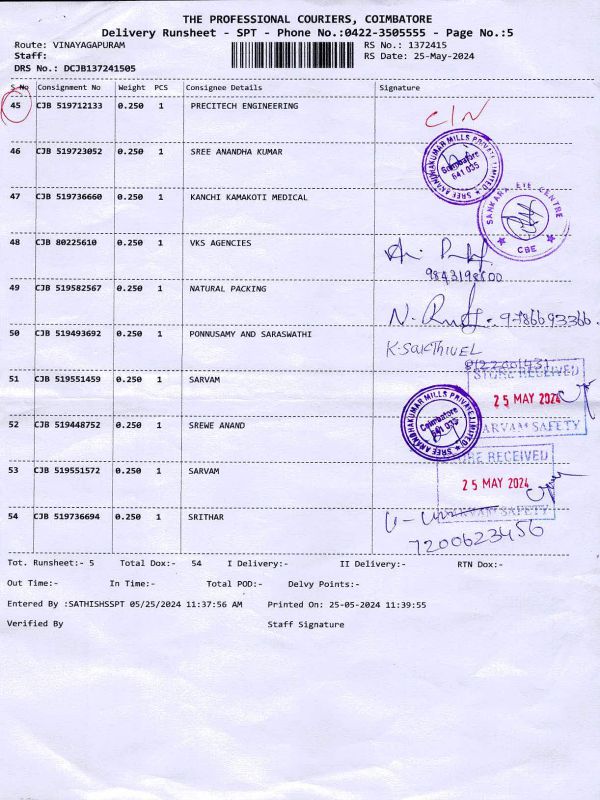 THE PROFESSIONAL COURIERS, COIMBATORE
Delivery Runsheet - SPT - Phone No.:0422-3505555 - Page No.:5
Route: VINAYAGAPURAM RS No.: 1372415
Staff: RS Date: 25-May-2024
DRS No.: DCJB137241505
S.No Consignment No Weight PCS Consignee Details Signature
45 CJB 519712133 0.250 1 PRECITECH ENGINEERING C/N
46 CJB 519723052 0.250 1 SREE ANANDHA KUMAR
SREE ANANDHAKUMAR MILLS PRIVATE LIMITED
Coimbatore
641 035
47 CJB 519736660 0.250 1 KANCHI KAMAKOTI MEDICAL
SANKARA EYE CENTRE
CBE
48 CJB 80225610 0.250 1 VKS AGENCIES
49 CJB 519582567 0.250 1 NATURAL PACKING
50 CJB 519493692 0.250 1 PONNUSAMY AND SARASWATHI
K.SAKTHIVEL
51 CJB 519551459 0.250 1 SARVAM
STORE RECEIVED
25 MAY 2024
SARVAM SAFETY
52 CJB 519448752 0.250 1 SREWE ANAND
SREE ANANDHAKUMAR MILLS PRIVATE LIMITED
Coimbatore
641 035
53 CJB 519551572 0.250 1 SARVAM
RECEIVED
25 MAY 2024
SARVAM SAFETY
54 CJB 519736694 0.250 1 SRITHAR
7200623456
Tot. Runsheet:- 5 Total Dox:- 54 I Delivery:- II Delivery:- RTN Dox:-
Out Time:- In Time:- Total POD:- Delvy Points:-
Entered By :SATHISHSSPT 05/25/2024 11:37:56 AM Printed On: 25-05-2024 11:39:55
Verified By Staff Signature